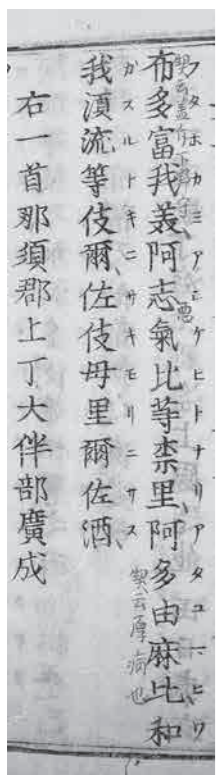 フタホカミアシケヒトナリアタユマヒワ
布多富我美、阿志氣比等柰里、阿多由麻比、和
悪
契云厚病也
ガスルトキニサキモリニサス
我湏流等伎爾、佐伎母里爾佐酒、
右一首那須郡上丁大伴部廣成